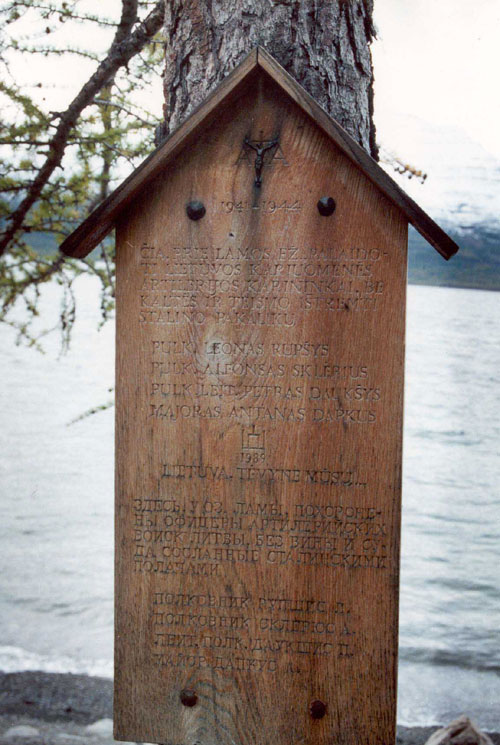 A A
1941-1944
ČIA, PRIE LAMOS EŽ. PALAIDO-
TI LIETUVOS KARIUOMENĖS
ARTILERIJOS KARININKAI, BE
KALTĖS IR TEISMO IŠTREMTI
STALINO PAKALIKŲ.
PULK. LEONAS RUPŠYS
PULK. ALFONSAS SKLĖRIUS
PULK. LEIT. PETRAS DAUKŠYS
MAJORAS ANTANAS DAPKUS
1989
LIETUVA, TĖVYNE MŪSŲ...
ЗДЕСЬ, У ОЗ. ЛАМЫ, ПОХОРОНЕ-
НЫ ОФИЦЕРЫ АРТИЛЛЕРИЙСКИХ
ВОЙСК ЛИТВЫ, БЕЗ ВИНЫ И СУ-
ДА СОСЛАННЫЕ СТАЛИНСКИМИ
ПОЛКОВНИК РУПШИС Л.
ПОЛКОВНИК СКЛЕРЮС А.
ЛЕЙТ. ПОЛК. ДАУКШИС П.
МАЙОР ДАПКУС А.